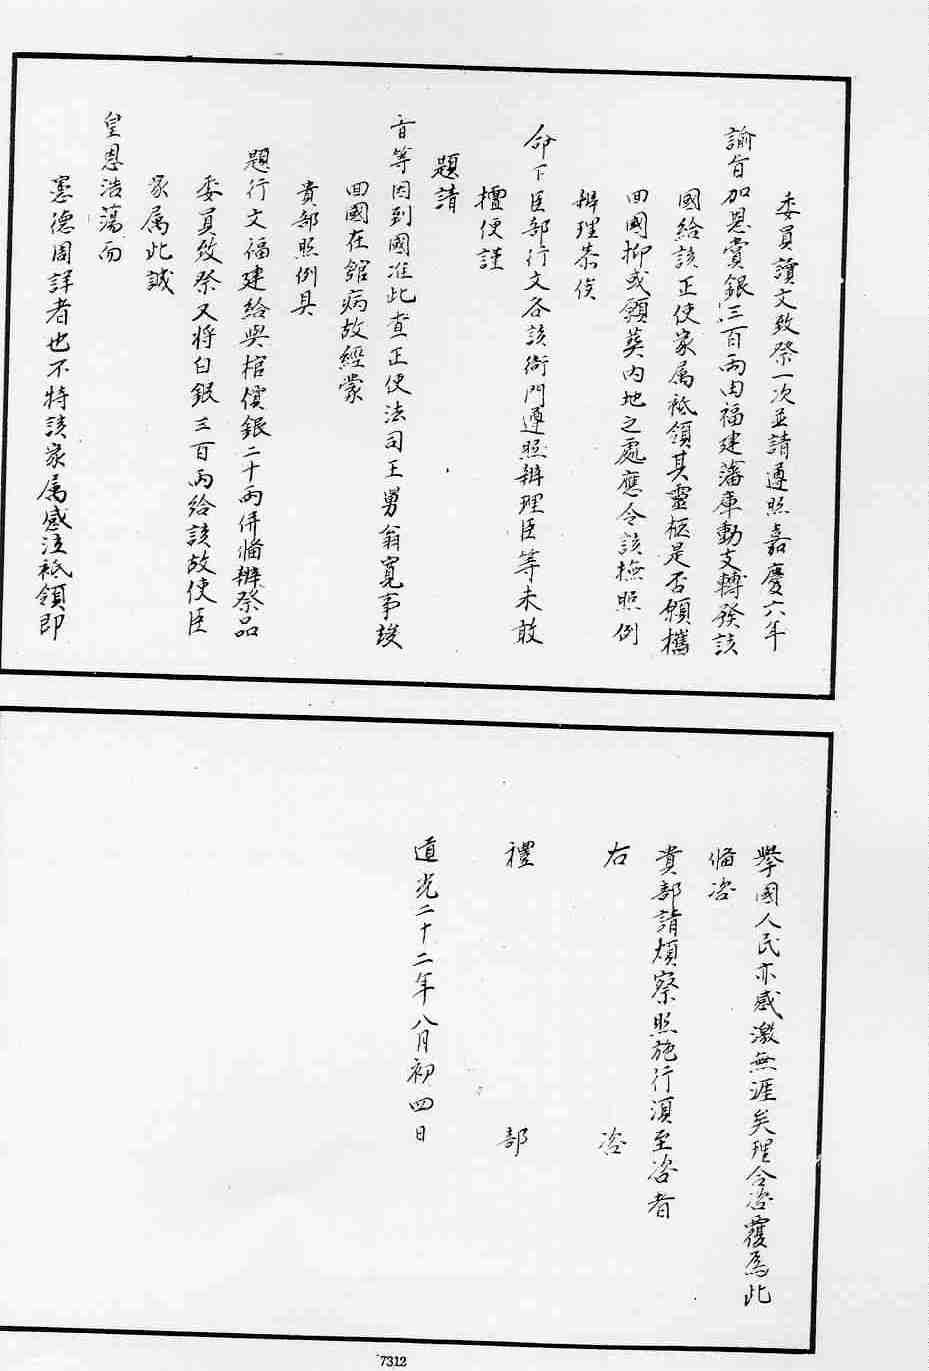 委員讀文致祭一次並請遵照嘉慶六年
諭旨加恩賞銀三百兩由福建藩庫動支轉發該
國給該正使家属祗領其靈柩是否願攜
回國抑或願葵内地之處應令該撫照例
辦理恭俟
命下臣部行文各該衙門遵照辦理臣等未敢
擅便謹
題請
旨等因到國准此查正使法司王舅翁寛事竣
回國在舘病故經蒙
貴部照例具
題行文福建給與棺價銀二十兩併俻辦祭品
委員致祭又将白銀三百兩給該故使臣
家属此誠
皇恩浩蕩而
憲德周詳者也不特該家属感泣祗領即
舉國人民亦感激無涯矣理合咨覆為此
俻咨
貴部請煩察照施行湏至咨者
右 咨
禮 部
道光二十二年八月初四日
7312